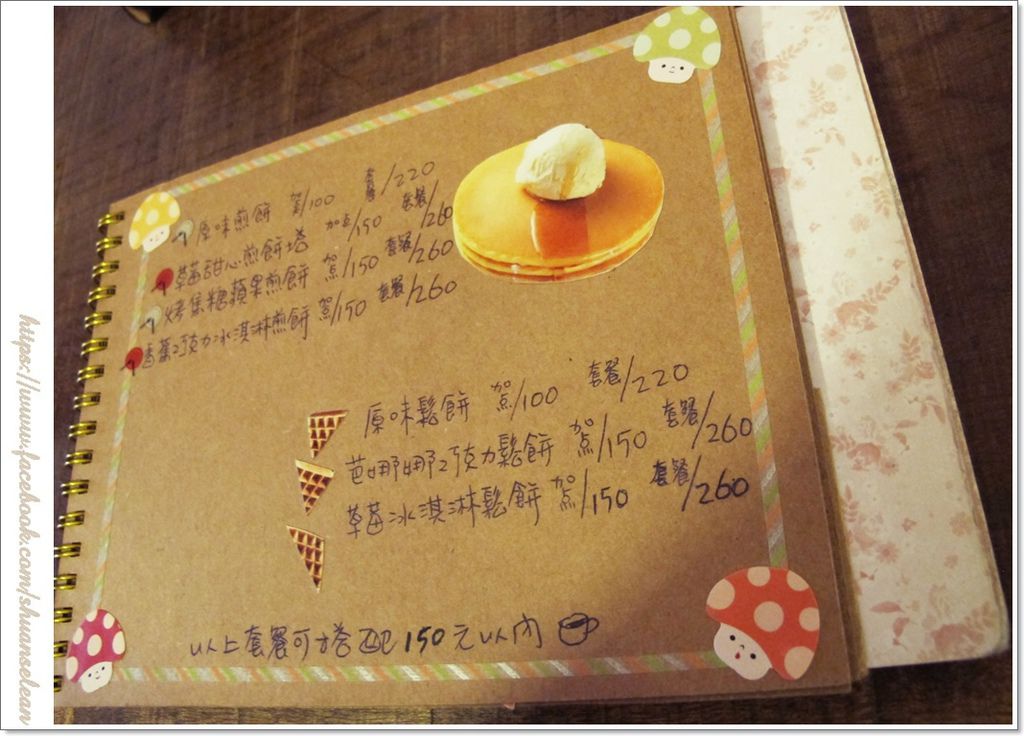 原味煎餅 加点/100 套餐/220
草莓甜心煎餅塔 加点/150 套餐/260
烤焦糖蘋果煎餅 加点/150 套餐/260
香蕉巧克力冰淇淋煎餅 加点/150 套餐/260
原味鬆餅 加点/100 套餐/220
芭娜娜巧克力鬆餅 加点/150 套餐/260
草莓冰淇淋鬆餅 加点/150 套餐/260
以上套餐可搭配150元以內
https://www.facebook.com/shuanselean